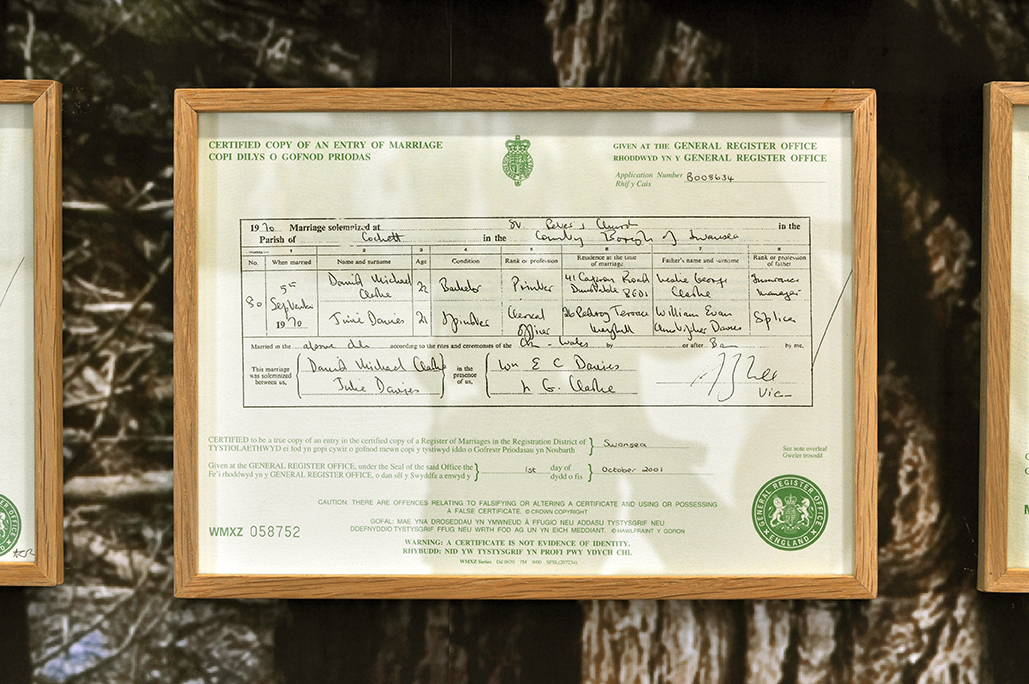 CERTIFIED COPY OF AN ENTRY OF MARRIAGE
COPI DILYS O GOFNOD PRIODAS
GIVEN AT THE GENERAL REGISTER OFFICE
RHODDWYD YN Y GENERAL REGISTER OFFICE
Application Number B008634
Rhif y Cais
1970 Marriage solemnized at St. Peter's Church in the
Parish of Cockett in the County Borough of Swansea
1 2 3 4 5 6 7 8
No. When married Name and surname Age Condition Rank or profession Residence at the time of marriage Father's name and surname Rank or profession of father
80 5th September 1970
David Michael Clarke 22 Bachelor Printer 41 Road Dunstable Leslie George Clarke Insurance Manager
Julie Davies 21 Spinster Clerical Officer 26 Terrace William Evan Christopher Davies Splicer
Married in the above ch according to the rites and ceremonies of the Ch - Wales by or after Ban by me,
This marriage was solemnized between us, David Michael Clarke Julie Davies in the presence of us, Wm E C Davies L G. Clarke
Vic
CERTIFIED to be a true copy of an entry in the certified copy of a Register of Marriages in the Registration District of Swansea
TYSTIOLAETHWYD ei fod yn gopi cywir o gofnod mewn copi y tystiwyd iddo o Gofrestr Priodasau yn Nosbarth
See note overleaf
Gweler trosodd
Given at the GENERAL REGISTER OFFICE, under the Seal of the said Office the 1st day of October 2001
Fe'i rhoddwyd yn y GENERAL REGISTER OFFICE, o dan sêl y Swyddfa a enwyd y dydd o fis
CAUTION: THERE ARE OFFENCES RELATING TO FALSIFYING OR ALTERING A CERTIFICATE AND USING OR POSSESSING
A FALSE CERTIFICATE. © CROWN COPYRIGHT
GOFAL: MAE YNA DROSEDDAU YN YMWNEUD Â FFUGIO NEU ADDASU TYSTYSGRIF NEU
DDEFNYDDIO TYSTYSGRIF FFUG NEU WRTH FOD AG UN YN EICH MEDDIANT. © HAWLFRAINT Y GORON
WARNING: A CERTIFICATE IS NOT EVIDENCE OF IDENTITY.
RHYBUDD: NID YW TYSTYSGRIF YN PROFI PWY YDYCH CHI.
WMXZ Series Dd 0670 7M 8/00 SPSL(207234)
WMXZ 058752
GENERAL REGISTER OFFICE
ENGLAND